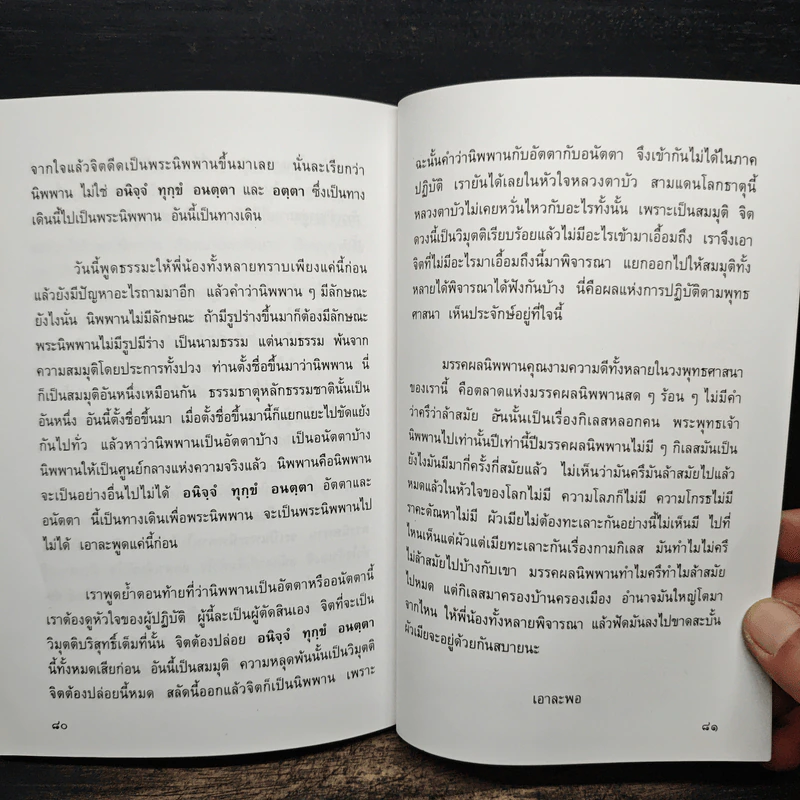 จากใจแล้วจิตดีดเป็นพระนิพพานขึ้นมาเลย นั่นละเรียกว่า
นิพพาน ไม่ใช่ อนิจฺจํ ทุกฺขํ อนตฺตา และ อตฺตา ซึ่งเป็นทาง
เดินนี้ไปเป็นพระนิพพาน อันนี้เป็นทางเดิน
วันนี้พูดธรรมะให้พี่น้องทั้งหลายทราบเพียงแค่นี้ก่อน
แล้วยังมีปัญหาอะไรถามมาอีก แล้วคำว่านิพพาน ๆ มีลักษณะ
ยังไงนั่น นิพพานไม่มีลักษณะ ถ้ามีรูปร่างขึ้นมาก็ต้องมีลักษณะ
พระนิพพานไม่มีรูปมีร่าง เป็นนามธรรม แต่นามธรรม พ้นจาก
ความสมมุติโดยประการทั้งปวง ท่านตั้งชื่อขึ้นมาว่านิพพาน นี่
ก็เป็นสมมุติอันหนึ่งเหมือนกัน ธรรมธาตุหลักธรรมชาตินั้นเป็น
อันหนึ่ง อันนี้ตั้งชื่อขึ้นมา เมื่อตั้งชื่อขึ้นมานี้ก็แยกแยะไปขัดแย้ง
กันไปทั่ว แล้วหาว่านิพพานเป็นอัตตาบ้าง เป็นอนัตตาบ้าง
นิพพานให้เป็นศูนย์กลางแห่งความจริงแล้ว นิพพานคือนิพพาน
จะเป็นอย่างอื่นไปไม่ได้ อนิจฺจํ ทุกฺขํ อนตฺตา อัตตาและ
อนัตตา นี้เป็นทางเดินเพื่อพระนิพพาน จะเป็นพระนิพพานไป
ไม่ได้ เอาละพูดแค่นี้ก่อน
เราพูดย้ำตอนท้ายที่ว่านิพพานเป็นอัตตาหรืออนัตตานี้
เราต้องดูหัวใจของผู้ปฏิบัติ ผู้นี้ละเป็นผู้ตัดสินเอง จิตที่จะเป็น
วิมุตติบริสุทธิ์เต็มที่นั้น จิตต้องปล่อย อนิจฺจํ ทุกฺขํ อนตฺตา
นี้ทั้งหมดเสียก่อน อันนี้เป็นสมมุติ ความหลุดพ้นนั้นเป็นวิมุตติ
จิตต้องปล่อยนี้หมด สลัดนี้ออกแล้วจิตก็เป็นนิพพาน เพราะ
๘๐
ฉะนั้นคำว่านิพพานกับอัตตากับอนัตตา จึงเข้ากันไม่ได้ในภาค
ปฏิบัติ เรายันได้เลยในหัวใจหลวงตาบัว สามแดนโลกธาตุนี้
หลวงตาบัวไม่เคยหวั่นไหวกับอะไรทั้งนั้น เพราะเป็นสมมุติ จิต
ดวงนี้เป็นวิมุตติเรียบร้อยแล้วไม่มีอะไรเข้ามาเอื้อมถึง เราจึงเอา
จิตที่ไม่มีอะไรมาเอื้อมถึงนี้มาพิจารณา แยกออกไปให้สมมุติทั้ง
หลายได้พิจารณาได้ฟังกันบ้าง นี่คือผลแห่งการปฏิบัติตามพุทธ
ศาสนา เห็นประจักษ์อยู่ที่ใจนี้
มรรคผลนิพพานคุณงามความดีทั้งหลายในวงพุทธศาสนา
ของเรานี้ คือตลาดแห่งมรรคผลนิพพานสด ๆ ร้อน ๆ ไม่มีคำ
ว่าครึว่าล้าสมัย อันนั้นเป็นเรื่องกิเลสหลอกคน พระพุทธเจ้า
นิพพานไปเท่านั้นปีเท่านี้ปีมรรคผลนิพพานไม่มี ๆ กิเลสมันเป็น
ยังไงมันมีมากี่ครั้งกี่สมัยแล้ว ไม่เห็นว่ามันครึมันล้าสมัยไปแล้ว
หมดแล้วในหัวใจของโลกไม่มี ความโลภก็ไม่มี ความโกรธไม่มี
ราคะตัณหาไม่มี ผัวเมียไม่ต้องทะเลาะกันอย่างนี้ไม่เห็นมี ไปที่
ไหนเห็นแต่ผัวแต่เมียทะเลาะกันเรื่องกามกิเลส มันทำไมไม่ครึ
ไม่ล้าสมัยไปบ้างกับเขา มรรคผลนิพพานทำไมครึทำไมล้าสมัย
ไปหมด แต่กิเลสมาครองบ้านครองเมือง อำนาจมันใหญ่โตมา
จากไหน ให้พี่น้องทั้งหลายพิจารณา แล้วฟัดมันลงไปขาดสะบั้น
ผัวเมียจะอยู่ด้วยกันสบายนะ
เอาละพอ
๘๑